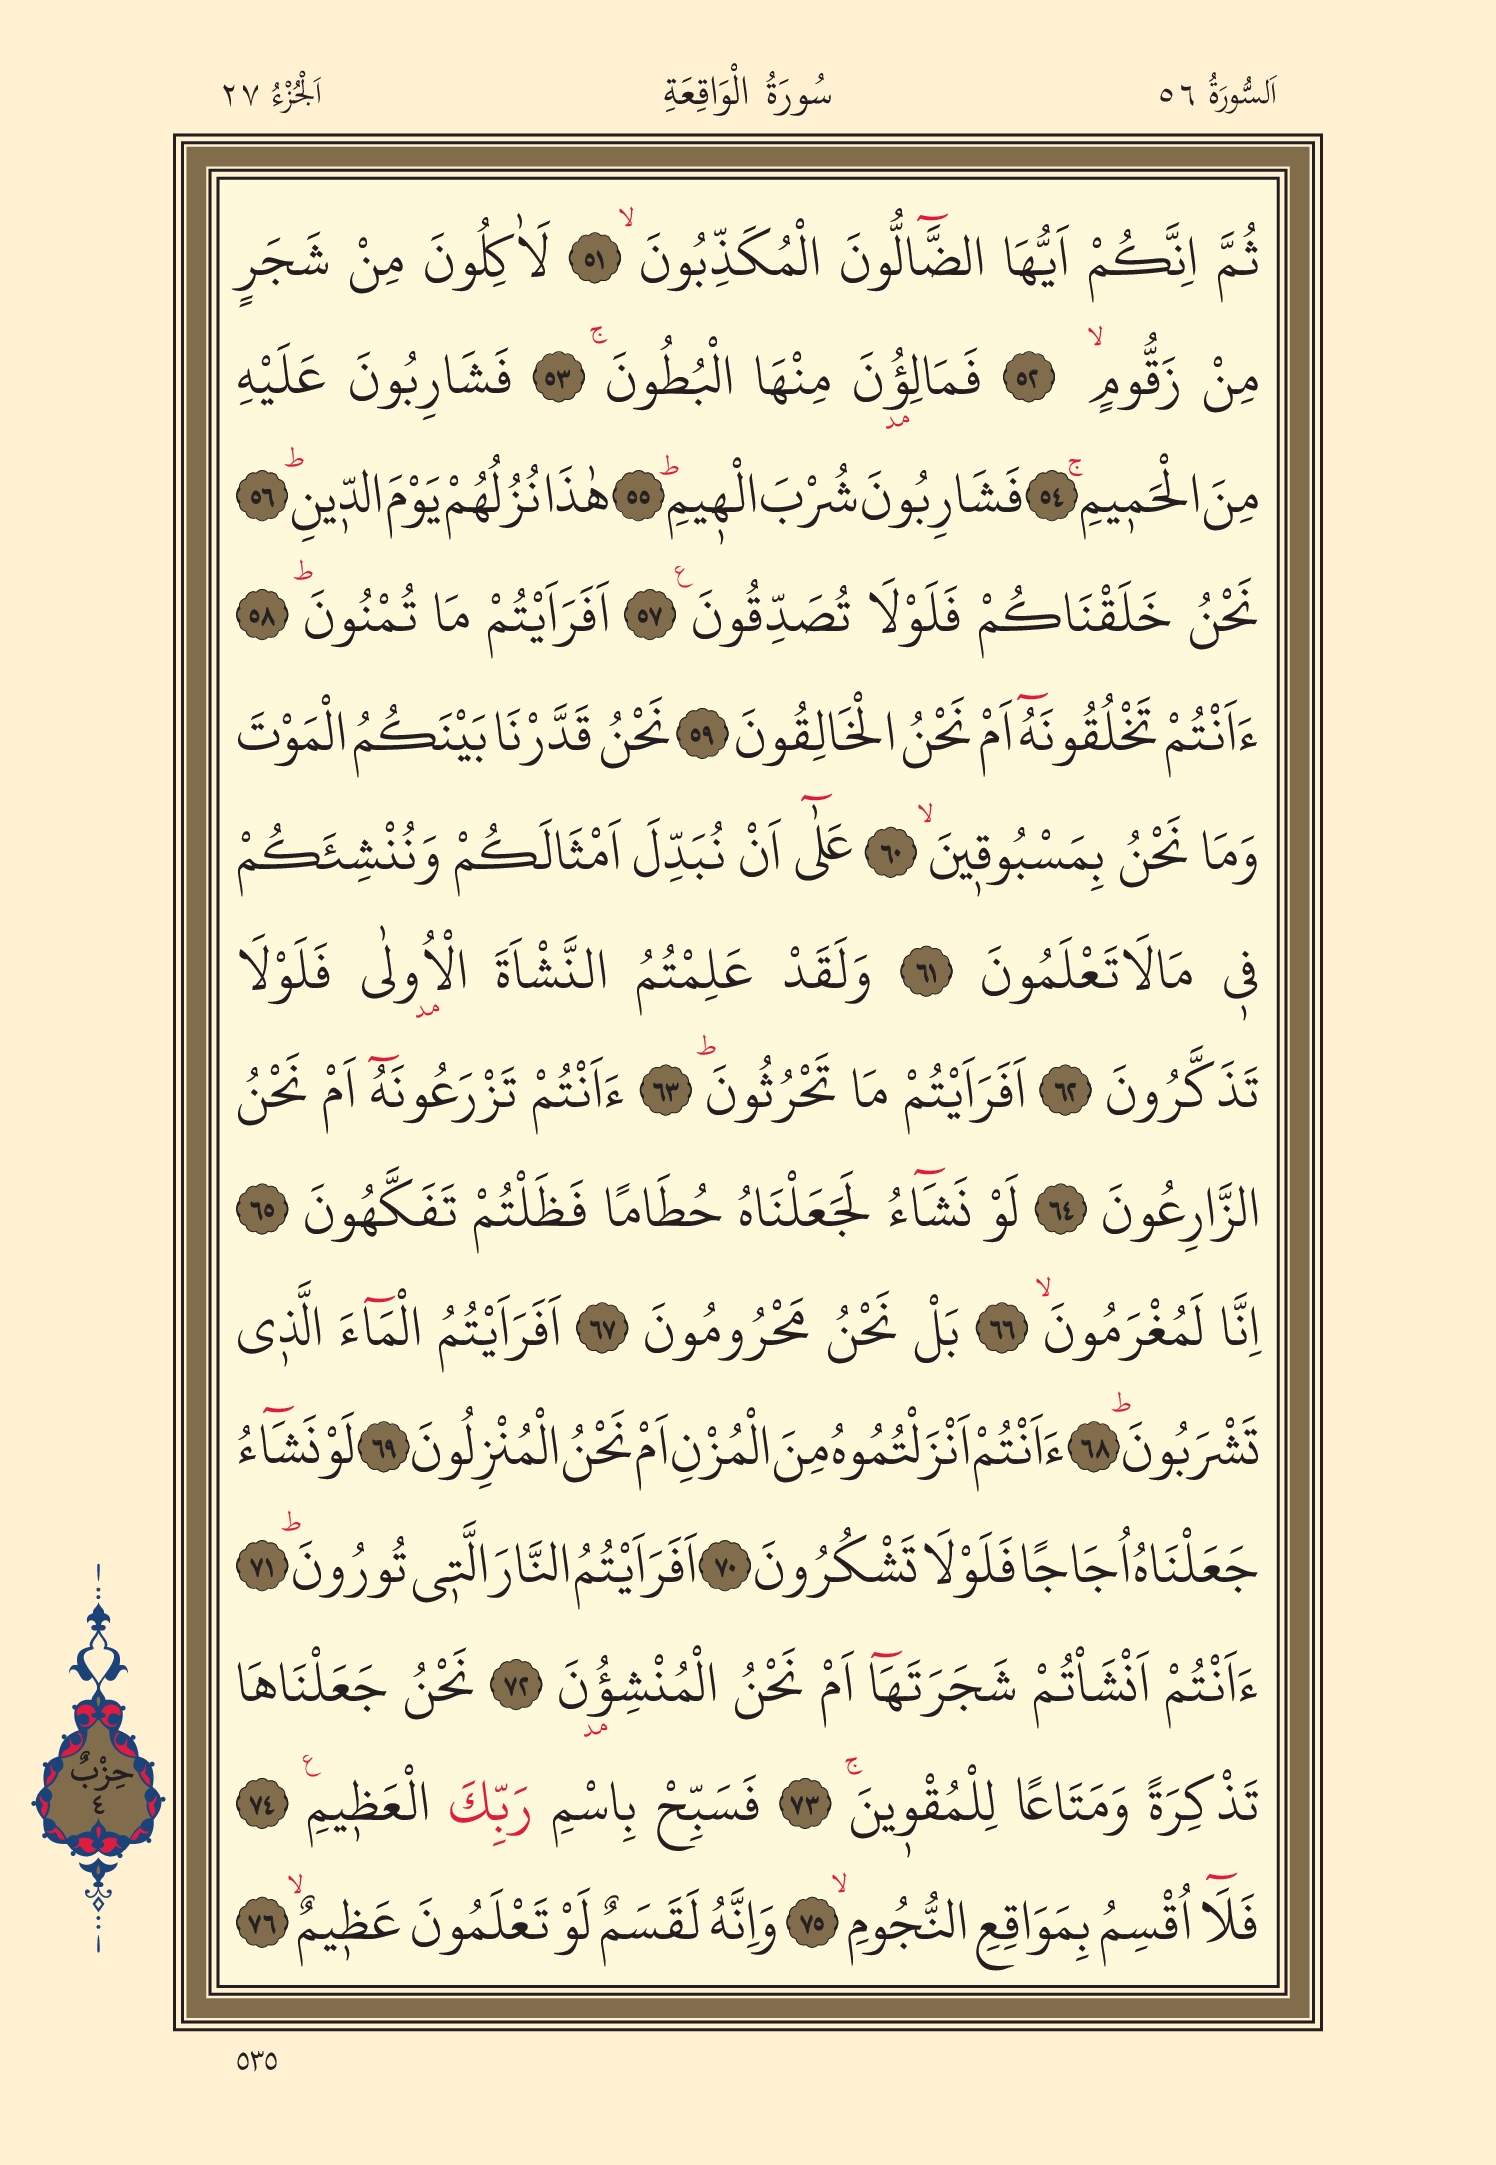 اَلسُّورَةُ ٥٦ سُورَةُ الْوَاقِعَةِ اَلْجُزْءُ ٢٧
ثُمَّ اِنَّكُمْ اَيُّهَا الضَّٓالُّونَ الْمُكَذِّبُونَۙ ﴿٥١﴾ لَاٰكِلُونَ مِنْ شَجَرٍ
مِنْ زَقُّومٍۙ ﴿٥٢﴾ فَمَالِؤُ۫نَ مِنْهَا الْبُطُونَۚ ﴿٥٣﴾ فَشَارِبُونَ عَلَيْهِ
مِنَ الْحَم۪يمِۚ ﴿٥٤﴾ فَشَارِبُونَ شُرْبَ الْه۪يمِۜ ﴿٥٥﴾ هٰذَا نُزُلُهُمْ يَوْمَ الدّ۪ينِۜ ﴿٥٦﴾
نَحْنُ خَلَقْنَاكُمْ فَلَوْلَا تُصَدِّقُونَ ع ﴿٥٧﴾ اَفَرَاَيْتُمْ مَا تُمْنُونَۜ ﴿٥٨﴾
ءَاَنْتُمْ تَخْلُقُونَهُٓ اَمْ نَحْنُ الْخَالِقُونَ ﴿٥٩﴾ نَحْنُ قَدَّرْنَا بَيْنَكُمُ الْمَوْتَ
وَمَا نَحْنُ بِمَسْبُوق۪ينَۙ ﴿٦٠﴾ عَلٰٓى اَنْ نُبَدِّلَ اَمْثَالَكُمْ وَنُنْشِئَكُمْ
ف۪ي مَا لَا تَعْلَمُونَ ﴿٦١﴾ وَلَقَدْ عَلِمْتُمُ النَّشْاَةَ الْاُو۫لٰى فَلَوْلَا
تَذَكَّرُونَ ﴿٦٢﴾ اَفَرَاَيْتُمْ مَا تَحْرُثُونَۜ ﴿٦٣﴾ ءَاَنْتُمْ تَزْرَعُونَهُٓ اَمْ نَحْنُ
الزَّارِعُونَ ﴿٦٤﴾ لَوْ نَشَٓاءُ لَجَعَلْنَاهُ حُطَامًا فَظَلْتُمْ تَفَكَّهُونَ ﴿٦٥﴾
اِنَّا لَمُغْرَمُونَۙ ﴿٦٦﴾ بَلْ نَحْنُ مَحْرُومُونَ ﴿٦٧﴾ اَفَرَاَيْتُمُ الْمَٓاءَ الَّذ۪ى
تَشْرَبُونَۜ ﴿٦٨﴾ ءَاَنْتُمْ اَنْزَلْتُمُوهُ مِنَ الْمُزْنِ اَمْ نَحْنُ الْمُنْزِلُونَ ﴿٦٩﴾ لَوْ نَشَٓاءُ
جَعَلْنَاهُ اُجَاجًا فَلَوْلَا تَشْكُرُونَ ﴿٧٠﴾ اَفَرَاَيْتُمُ النَّارَ الَّت۪ى تُورُونَۜ ﴿٧١﴾
ءَاَنْتُمْ اَنْشَاْتُمْ شَجَرَتَهَٓا اَمْ نَحْنُ الْمُنْشِؤُ۫نَ ﴿٧٢﴾ نَحْنُ جَعَلْنَاهَا
تَذْكِرَةً وَمَتَاعًا لِلْمُقْو۪ينَۚ ﴿٧٣﴾ فَسَبِّحْ بِاسْمِ رَبِّكَ الْعَظ۪يمِ ع ﴿٧٤﴾
فَلَٓا اُقْسِمُ بِمَوَاقِعِ النُّجُومِۙ ﴿٧٥﴾ وَاِنَّهُ لَقَسَمٌ لَوْ تَعْلَمُونَ عَظ۪يمٌۙ ﴿٧٦﴾
حِزْبٌ
٤
٥٣٥